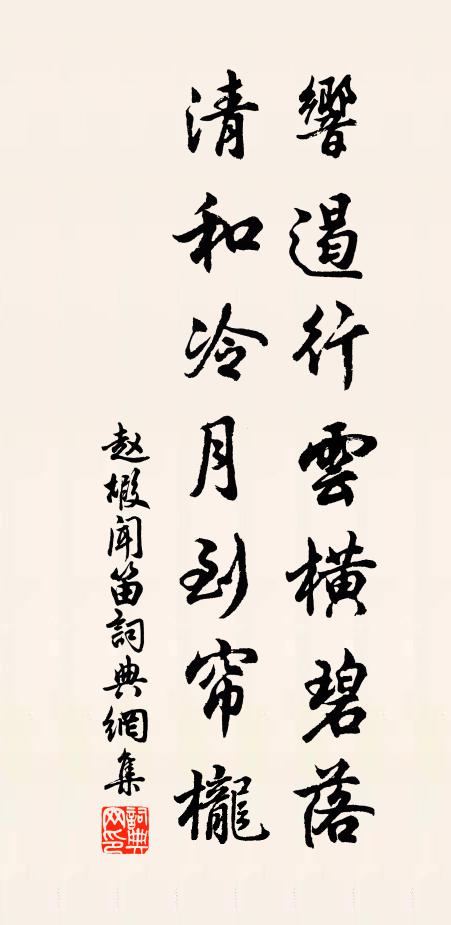 響遏行雲橫碧落
清和冷月到帘櫳
赵嘏聞笛詞典網集
詞典網印